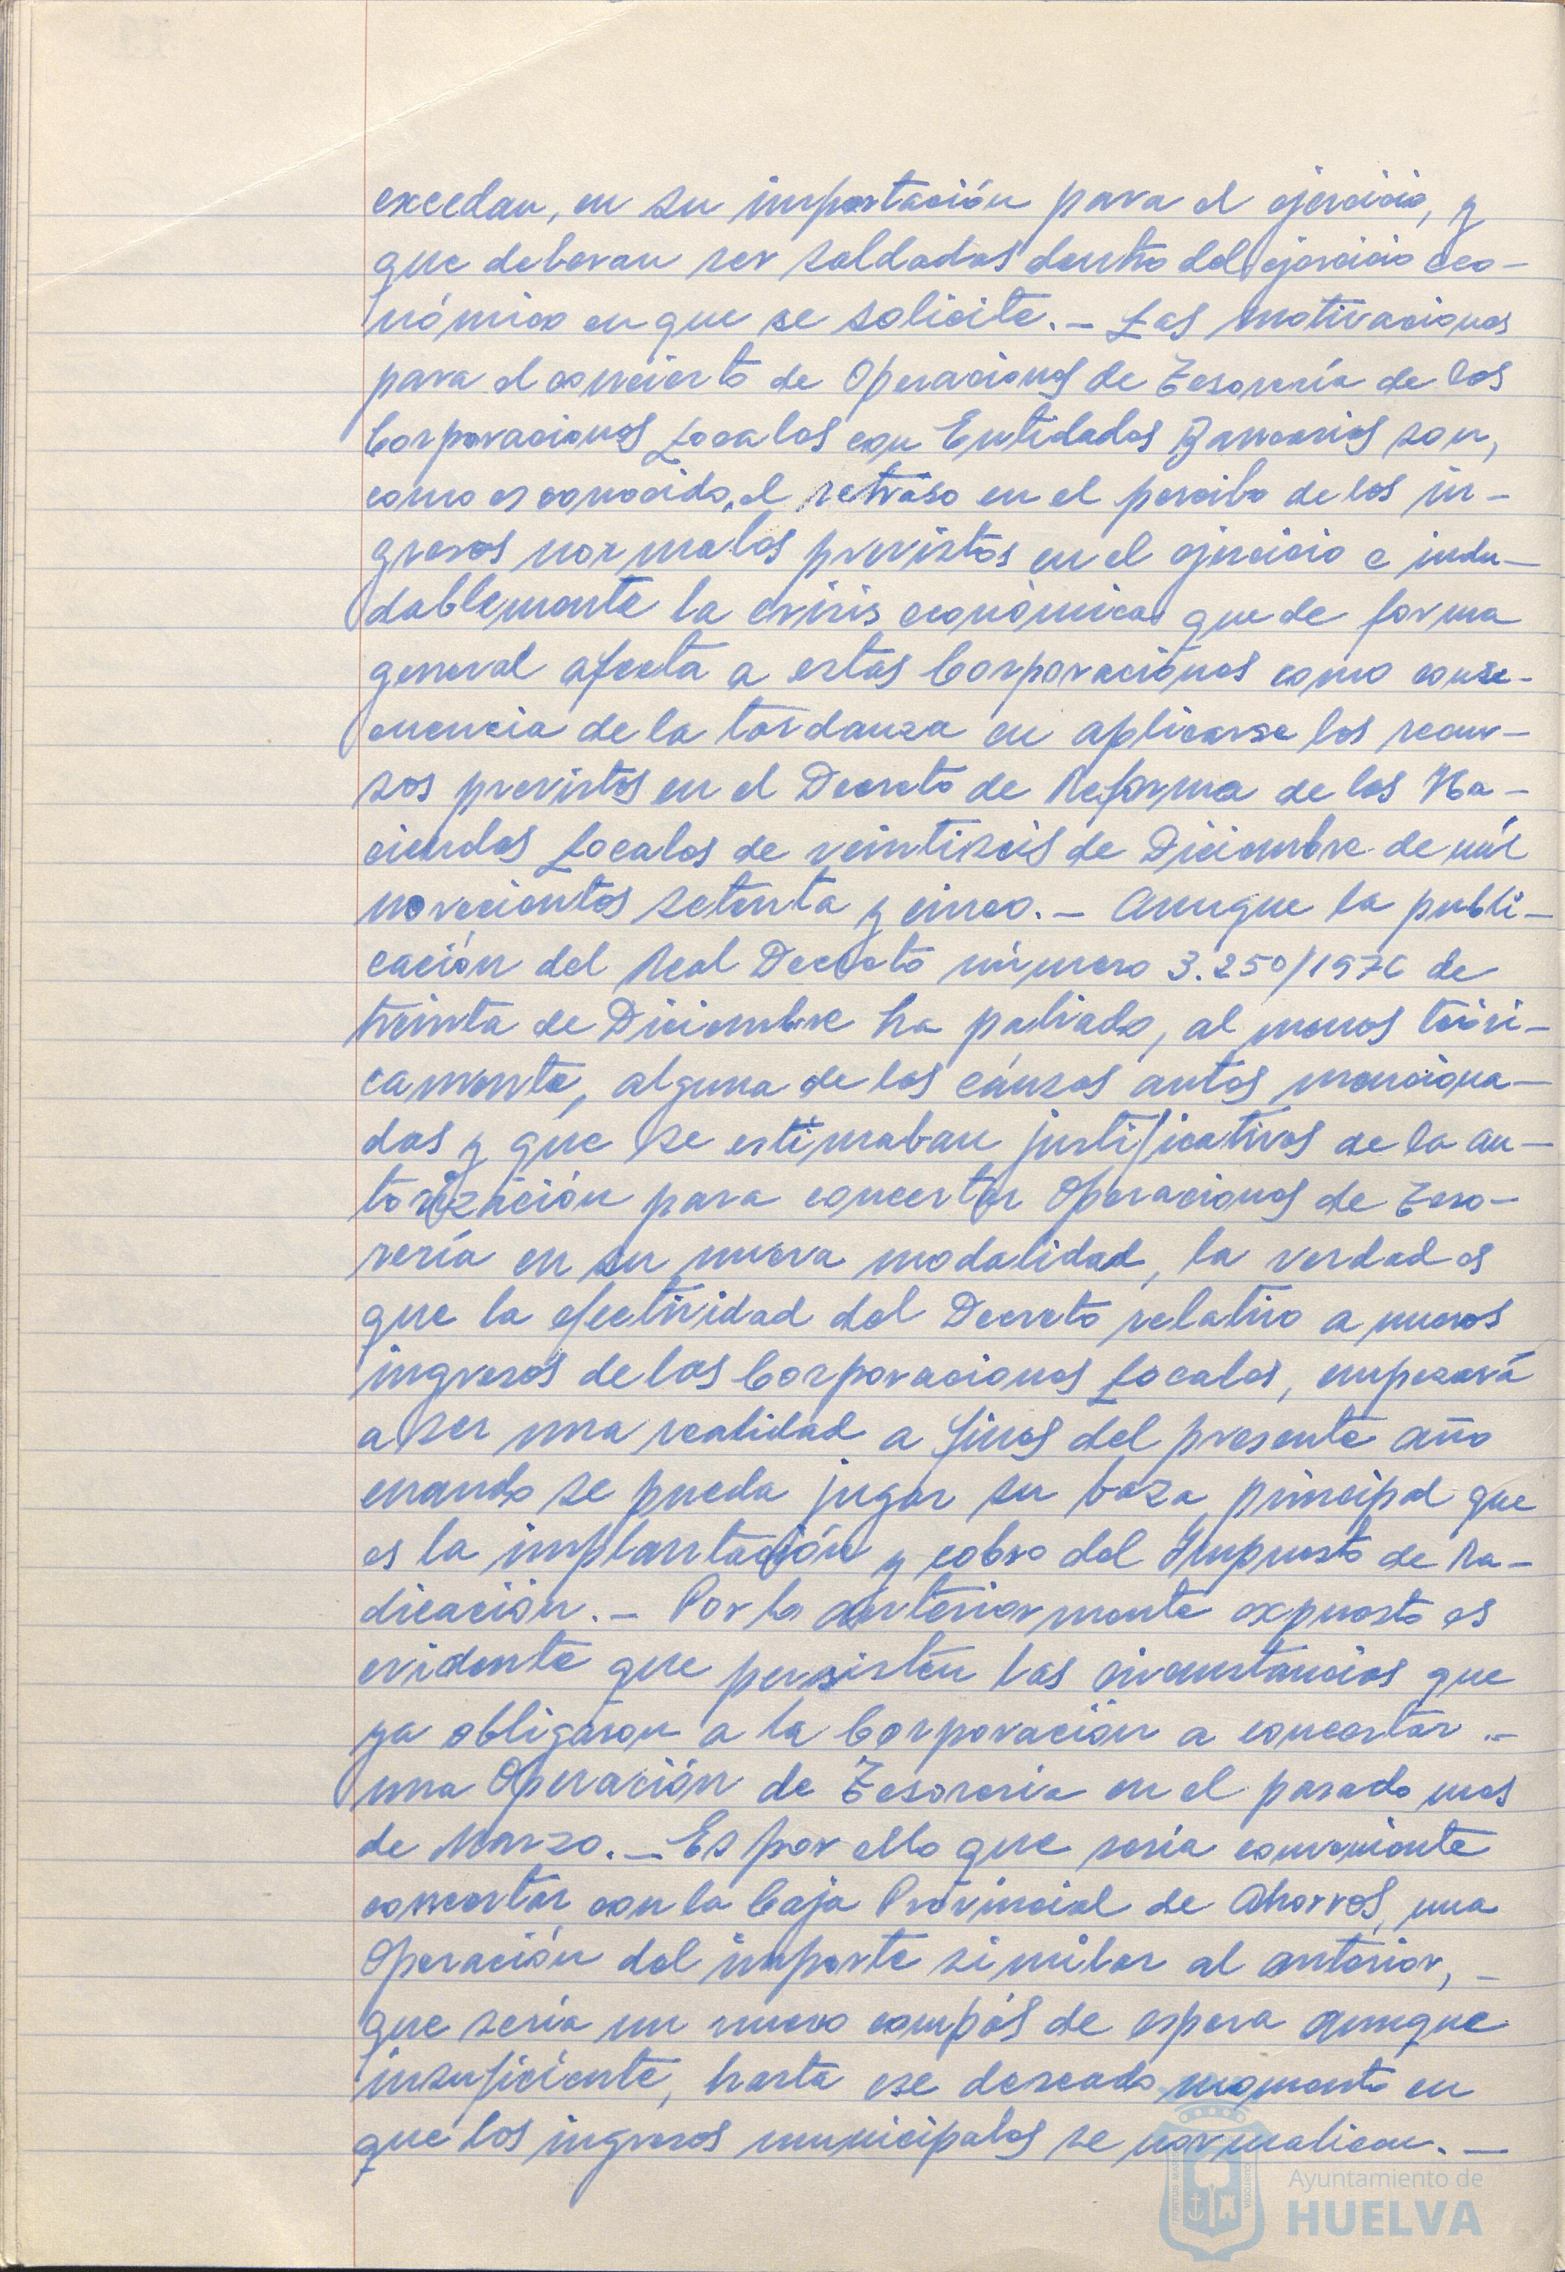 excedan, en su importación para el ejercicio, y
que deberan ser saldadas dentro del ejercicio eco-
nómico en que se solicite.- Las motivaciones
para el concierto de Operaciones de Tesorería de las
Corporaciones Locales con Entidades Bancarias son,
como es conocido, el retraso en el percibo de los in-
gresos normales previstos en el ejercicio e indu-
dablemente la crisis económica que de forma
general afecta a estas Corporaciones como conse-
cuencia de la tardanza en aplicarse los recur-
sos previstos en el Decreto de Reforma de las Ha-
ciendas Locales de veintiseis de Diciembre de mil
novecientos setenta y cinco.- Aunque la publi-
cación del Real Decreto número 3.250/1976 de
treinta de Diciembre ha paliado, al menos teóri-
camente, alguna de las cáusas antes menciona-
das y que se estimaban justificativas de la au-
torización para concertar Operaciones de Teso-
rería en su nueva modalidad, la verdad es
que la efectividad del Decreto relativo a nuevos
ingresos de las Corporaciones Locales, empezará
a ser una realidad a fines del presente año
cuando se pueda jugar su baza principal que
es la implantación y cobro del Impuesto de Ra-
dicación.- Por lo anteriormente expuesto es
evidente que persisten las circunstancias que
ya obligaron a la Corporación a concertar -
una Operación de Tesoreria en el pasado mes
de Marzo.- Es por ello que seria conveniente
concertar con la Caja Provincial de Ahorros, una
Operación del importe similar al anterior, -
que sería un nuevo compás de espera aunque
insuficiente, hasta ese deseado momento en
que los ingresos municipales se normalicen. -
Ayuntamiento de
HUELVA